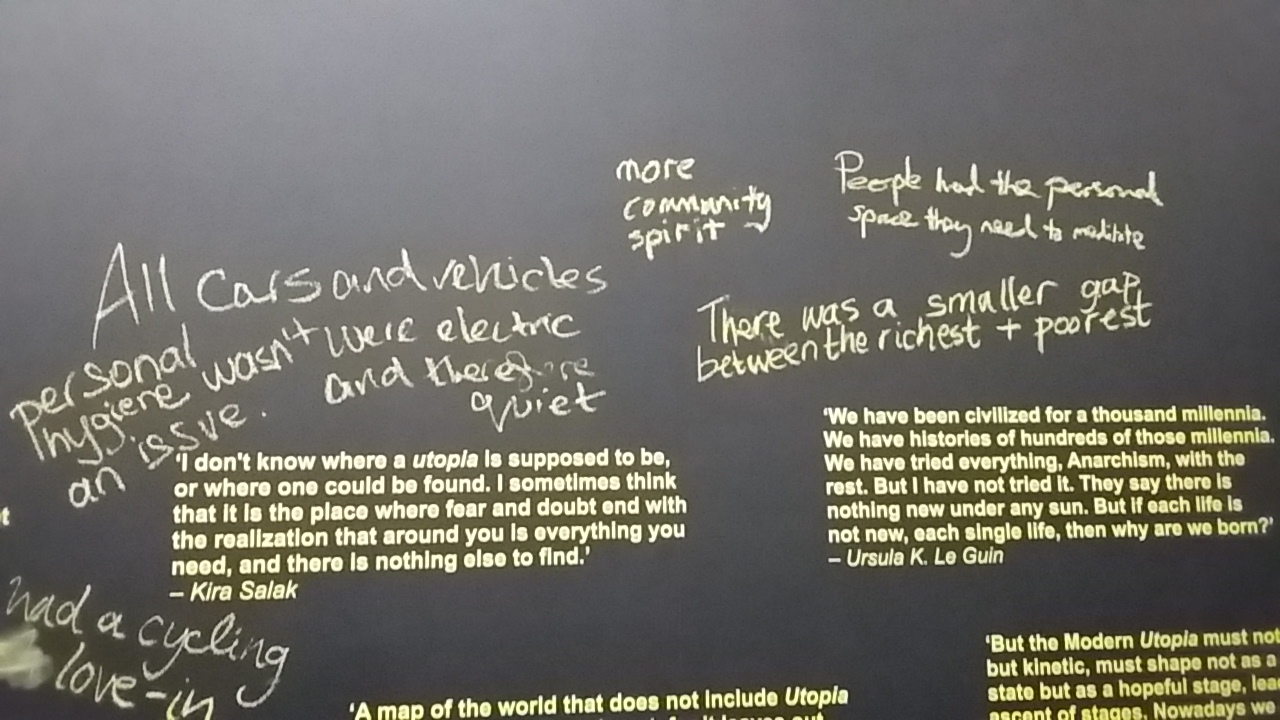 more
community
spirit
People had the personal
space they need to meditate
All cars and vehicles
were electric
and therefore
quiet
personal
hygiene wasn't
an issue.
There was a smaller gap
between the richest + poorest
'I don't know where a utopia is supposed to be,
or where one could be found. I sometimes think
that it is the place where fear and doubt end with
the realization that around you is everything you
need, and there is nothing else to find.'
– Kira Salak
'We have been civilized for a thousand millennia.
We have histories of hundreds of those millennia.
We have tried everything, Anarchism, with the
rest. But I have not tried it. They say there is
nothing new under any sun. But if each life is
not new, each single life, then why are we born?'
– Ursula K. Le Guin
had a cycling
love-in
'But the Modern Utopia must not
but kinetic, must shape not as a
state but as a hopeful stage,
ascent of stages. Nowadays we
'A map of the world that does not include Utopia